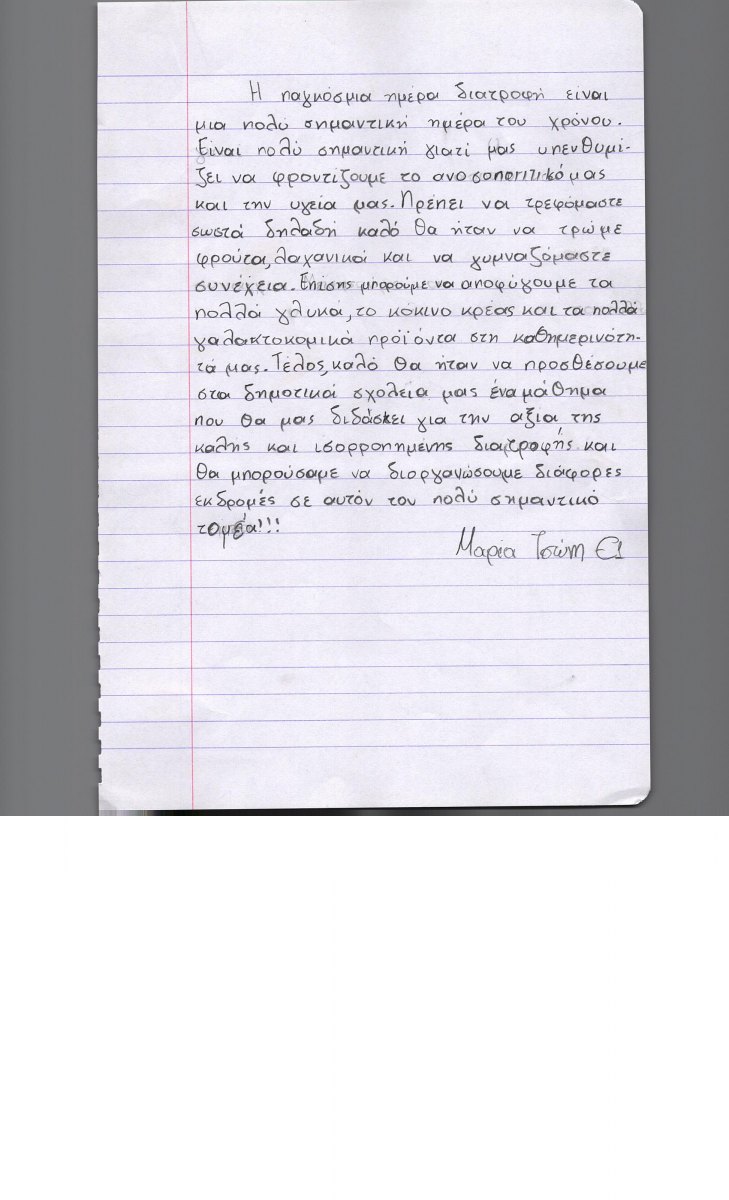 Η παγκόσμια ημέρα διατροφή είναι
μια πολύ σημαντική ημέρα του χρόνου.
Είναι πολύ σημαντική γιατί μας υπενθυμί-
ζει να φροντίζουμε το ανοσοποιτικό μας
και την υγεία μας. Πρέπει να τρεφόμαστε
σωστά δηλαδή καλό θα ήταν να τρώμε
φρούτα, λαχανικά και να γυμναζόμαστε
συνέχεια. Επίσης μπορούμε να αποφύγουμε τα
πολλά γλυκά, το κόκινο κρέας και τα πολλά
γαλακτοκομικά προϊόντα στη καθημερινότη-
τά μας. Τέλος, καλό θα ήταν να προσθέσουμε
στα δημοτικά σχολεία μας ένα μάθημα
που θα μας διδάσκει για την αξία της
καλής και ισορροπημένης διατροφής και
θα μπορούσαμε να διοργανώσουμε διάφορες
εκδρομές σε αυτόν τον πολύ σημαντικό
τομέα!!!
Μαρία Τσώνη Ε1